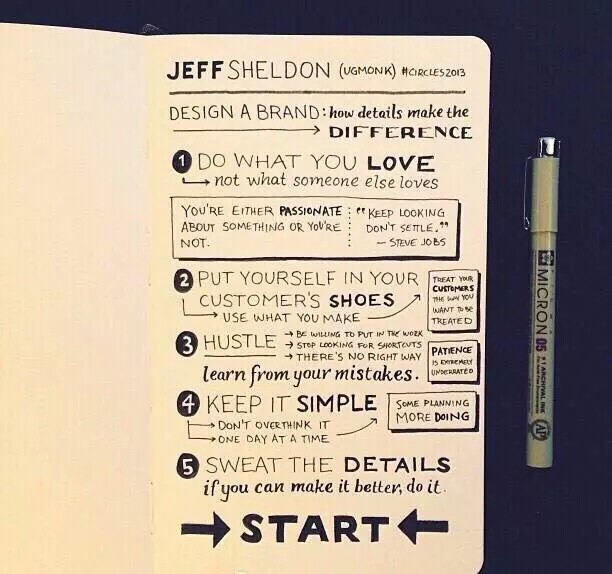 JEFF SHELDON (UGMONK) #CIRCLES2013
DESIGN A BRAND: how details make the
DIFFERENCE
1 DO WHAT YOU LOVE
not what someone else loves
YOU'RE EITHER PASSIONATE
ABOUT SOMETHING OR YOU'RE
NOT.
"KEEP LOOKING
DON'T SETTLE."
— STEVE JOBS
2 PUT YOURSELF IN YOUR
CUSTOMER'S SHOES
USE WHAT YOU MAKE
TREAT YOUR
CUSTOMERS
THE WAY YOU
WANT TO BE
TREATED
3 HUSTLE
BE WILLING TO PUT IN THE WORK
STOP LOOKING FOR SHORTCUTS
THERE'S NO RIGHT WAY
learn from your mistakes.
PATIENCE
IS EXTREMELY
UNDERRATED
4 KEEP IT SIMPLE
DON'T OVERTHINK IT
ONE DAY AT A TIME
SOME PLANNING
MORE DOING
5 SWEAT THE DETAILS
if you can make it better, do it.
START
MICRON 05
ARCHIVAL INK
AP